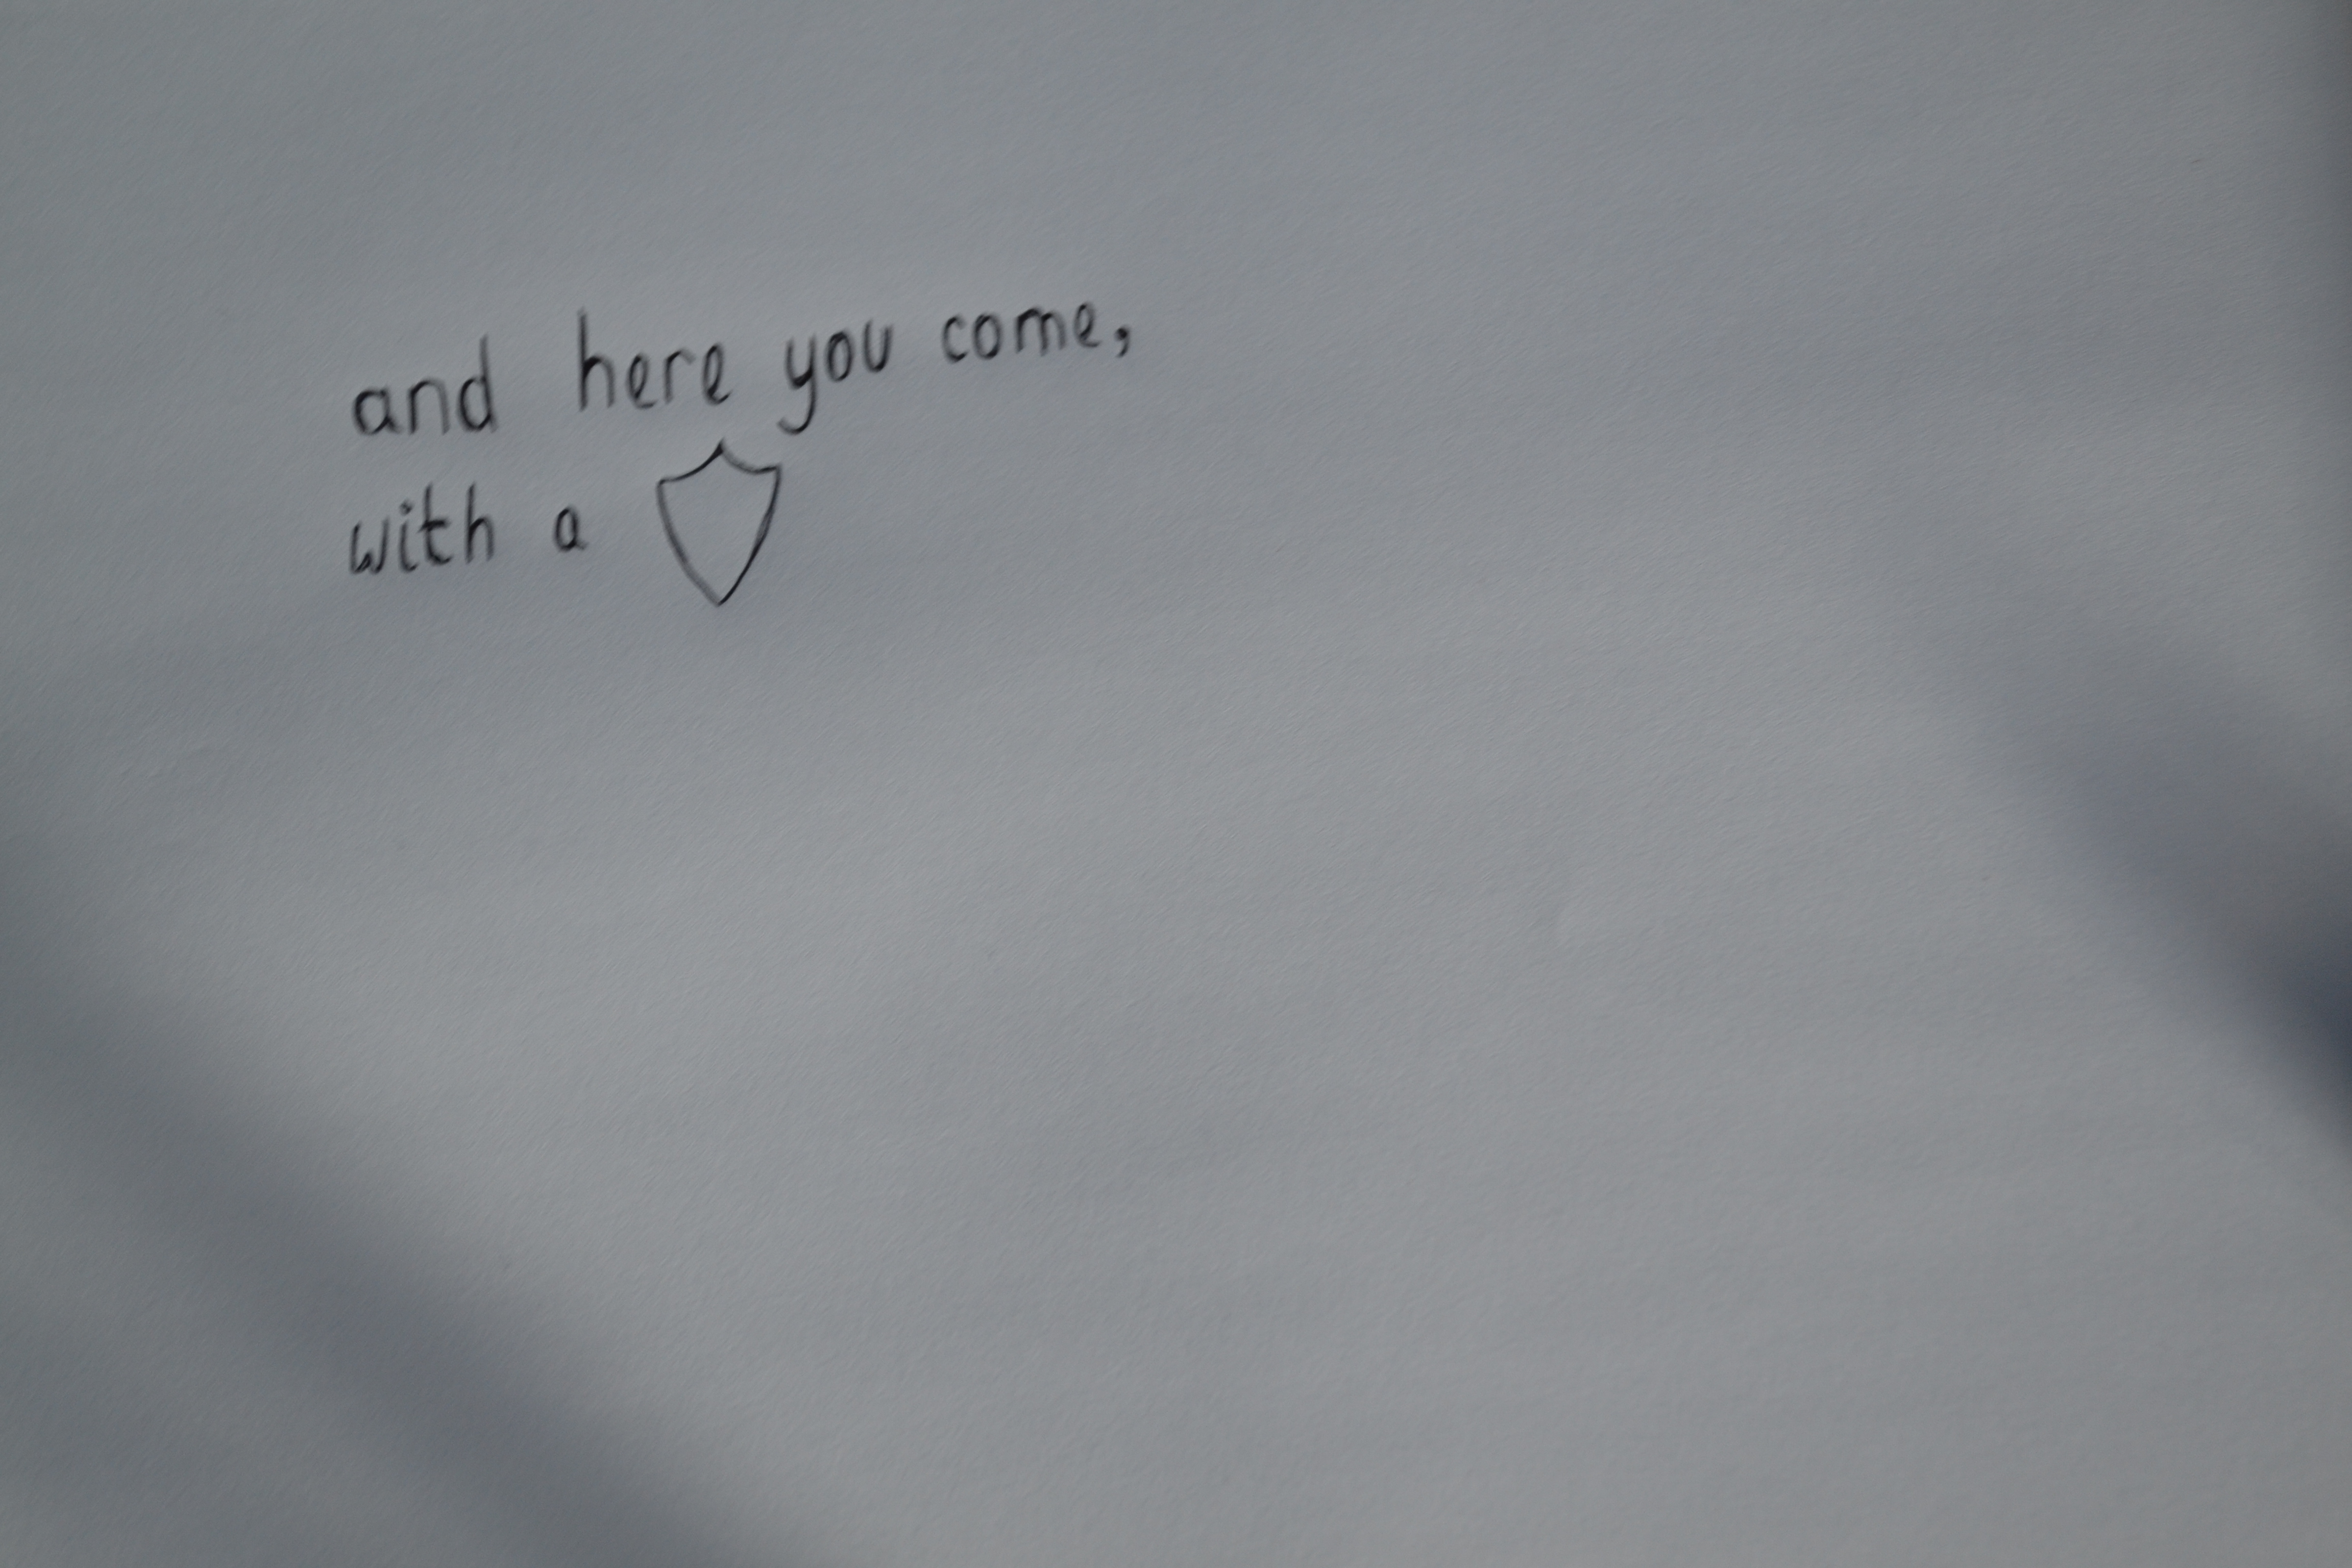 and here you come,
with a